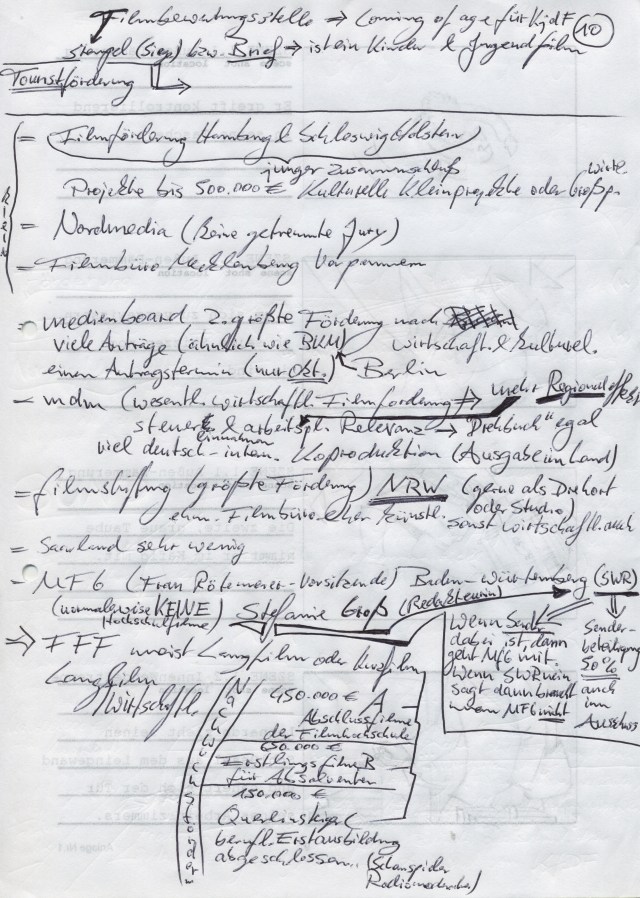 Filmbewertungsstelle → Coming of age für KjdF 10
stangel (Sieg) bzw. Brief → ist ein Kinder & Jugendfilm
Touristförderung
= Filmförderung Hamburg & Schleswig Holstein
junger Zusammenschluß
Projekte bis 500.000 € Kulturelle Kleinprojekte oder wirtl. Großp.
= Nordmedia (keine getrennte Jury)
= Filmbüro Mecklenberg Vorpommern
= medienboard 2. größte Förderung nach
viele Anträge (ähnlich wie BKM) wirtschaftl. & kulturel.
einen Antragstermin (nur Okt.) Berlin
- mdm (wesentl. wirtschaftl. Filmförderung → mehr Regionaleffekt
steuer & arbeitspl. Relevanz → "Drehbuch" egal
einnahmen
viel deutsch-intern. Koproduktion (Ausgabe im Land)
= filmstiftung (größte Förderung) NRW (gerne als Drehort
oder Studio)
ehm. Filmbüro eher künstl. sonst wirtschaftl. auch
= Saarland sehr wenig
- MFG (Frau Rötemeier-Vorsitzende) Baden-Württemberg (SWR)
(normalerweise KEWE) Stefanie Groß (Redakteurin)
Hochschulfilme
Wenn Sender
dabei ist, dann
geht MFG mit.
Wenn SWR nein
sagt dann braucht
man MFG nicht
Sender-
beteiligung
50%
auch
im
Ausschuss
⇒ FFF meist Langfilm oder Kurzfilm
Langfilm
Wirtschaftl.
Nachwuchsförderung
450.000 € A
Abschlussfilme
der Filmhochschule
650.000 €
Erstlingsfilme B
für Absolventen
150.000 €
Quereinsteiger C
berufl. Erstausbildung
abgeschlossen. (Schauspieler
Radiomacher)